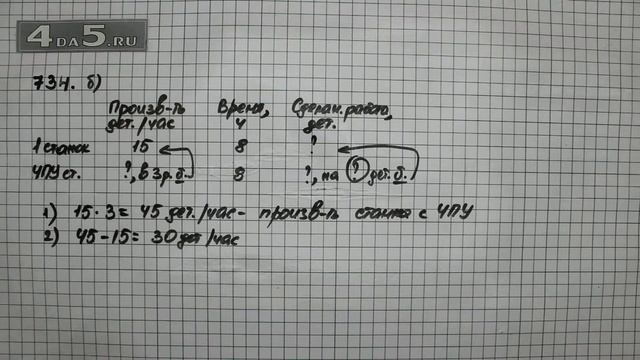 4DA5.RU
734. б)
Произв-ть Время, Сделан. работа,
дет./час ч дет.
1 станок 15 8 ?
ЧПУ ст. ?, в 3 р. б. 8 ?, на ? дет. б.
1) 15 · 3 = 45 дет./час - произв-ть станка с ЧПУ
2) 45 - 15 = 30 дет/час